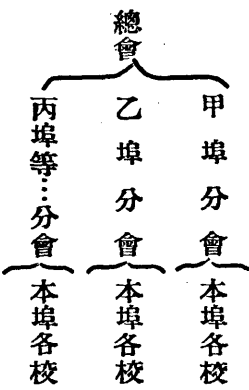 總會
甲埠分會
乙埠分會
丙埠等…分會
本埠各校
本埠各校
本埠各校